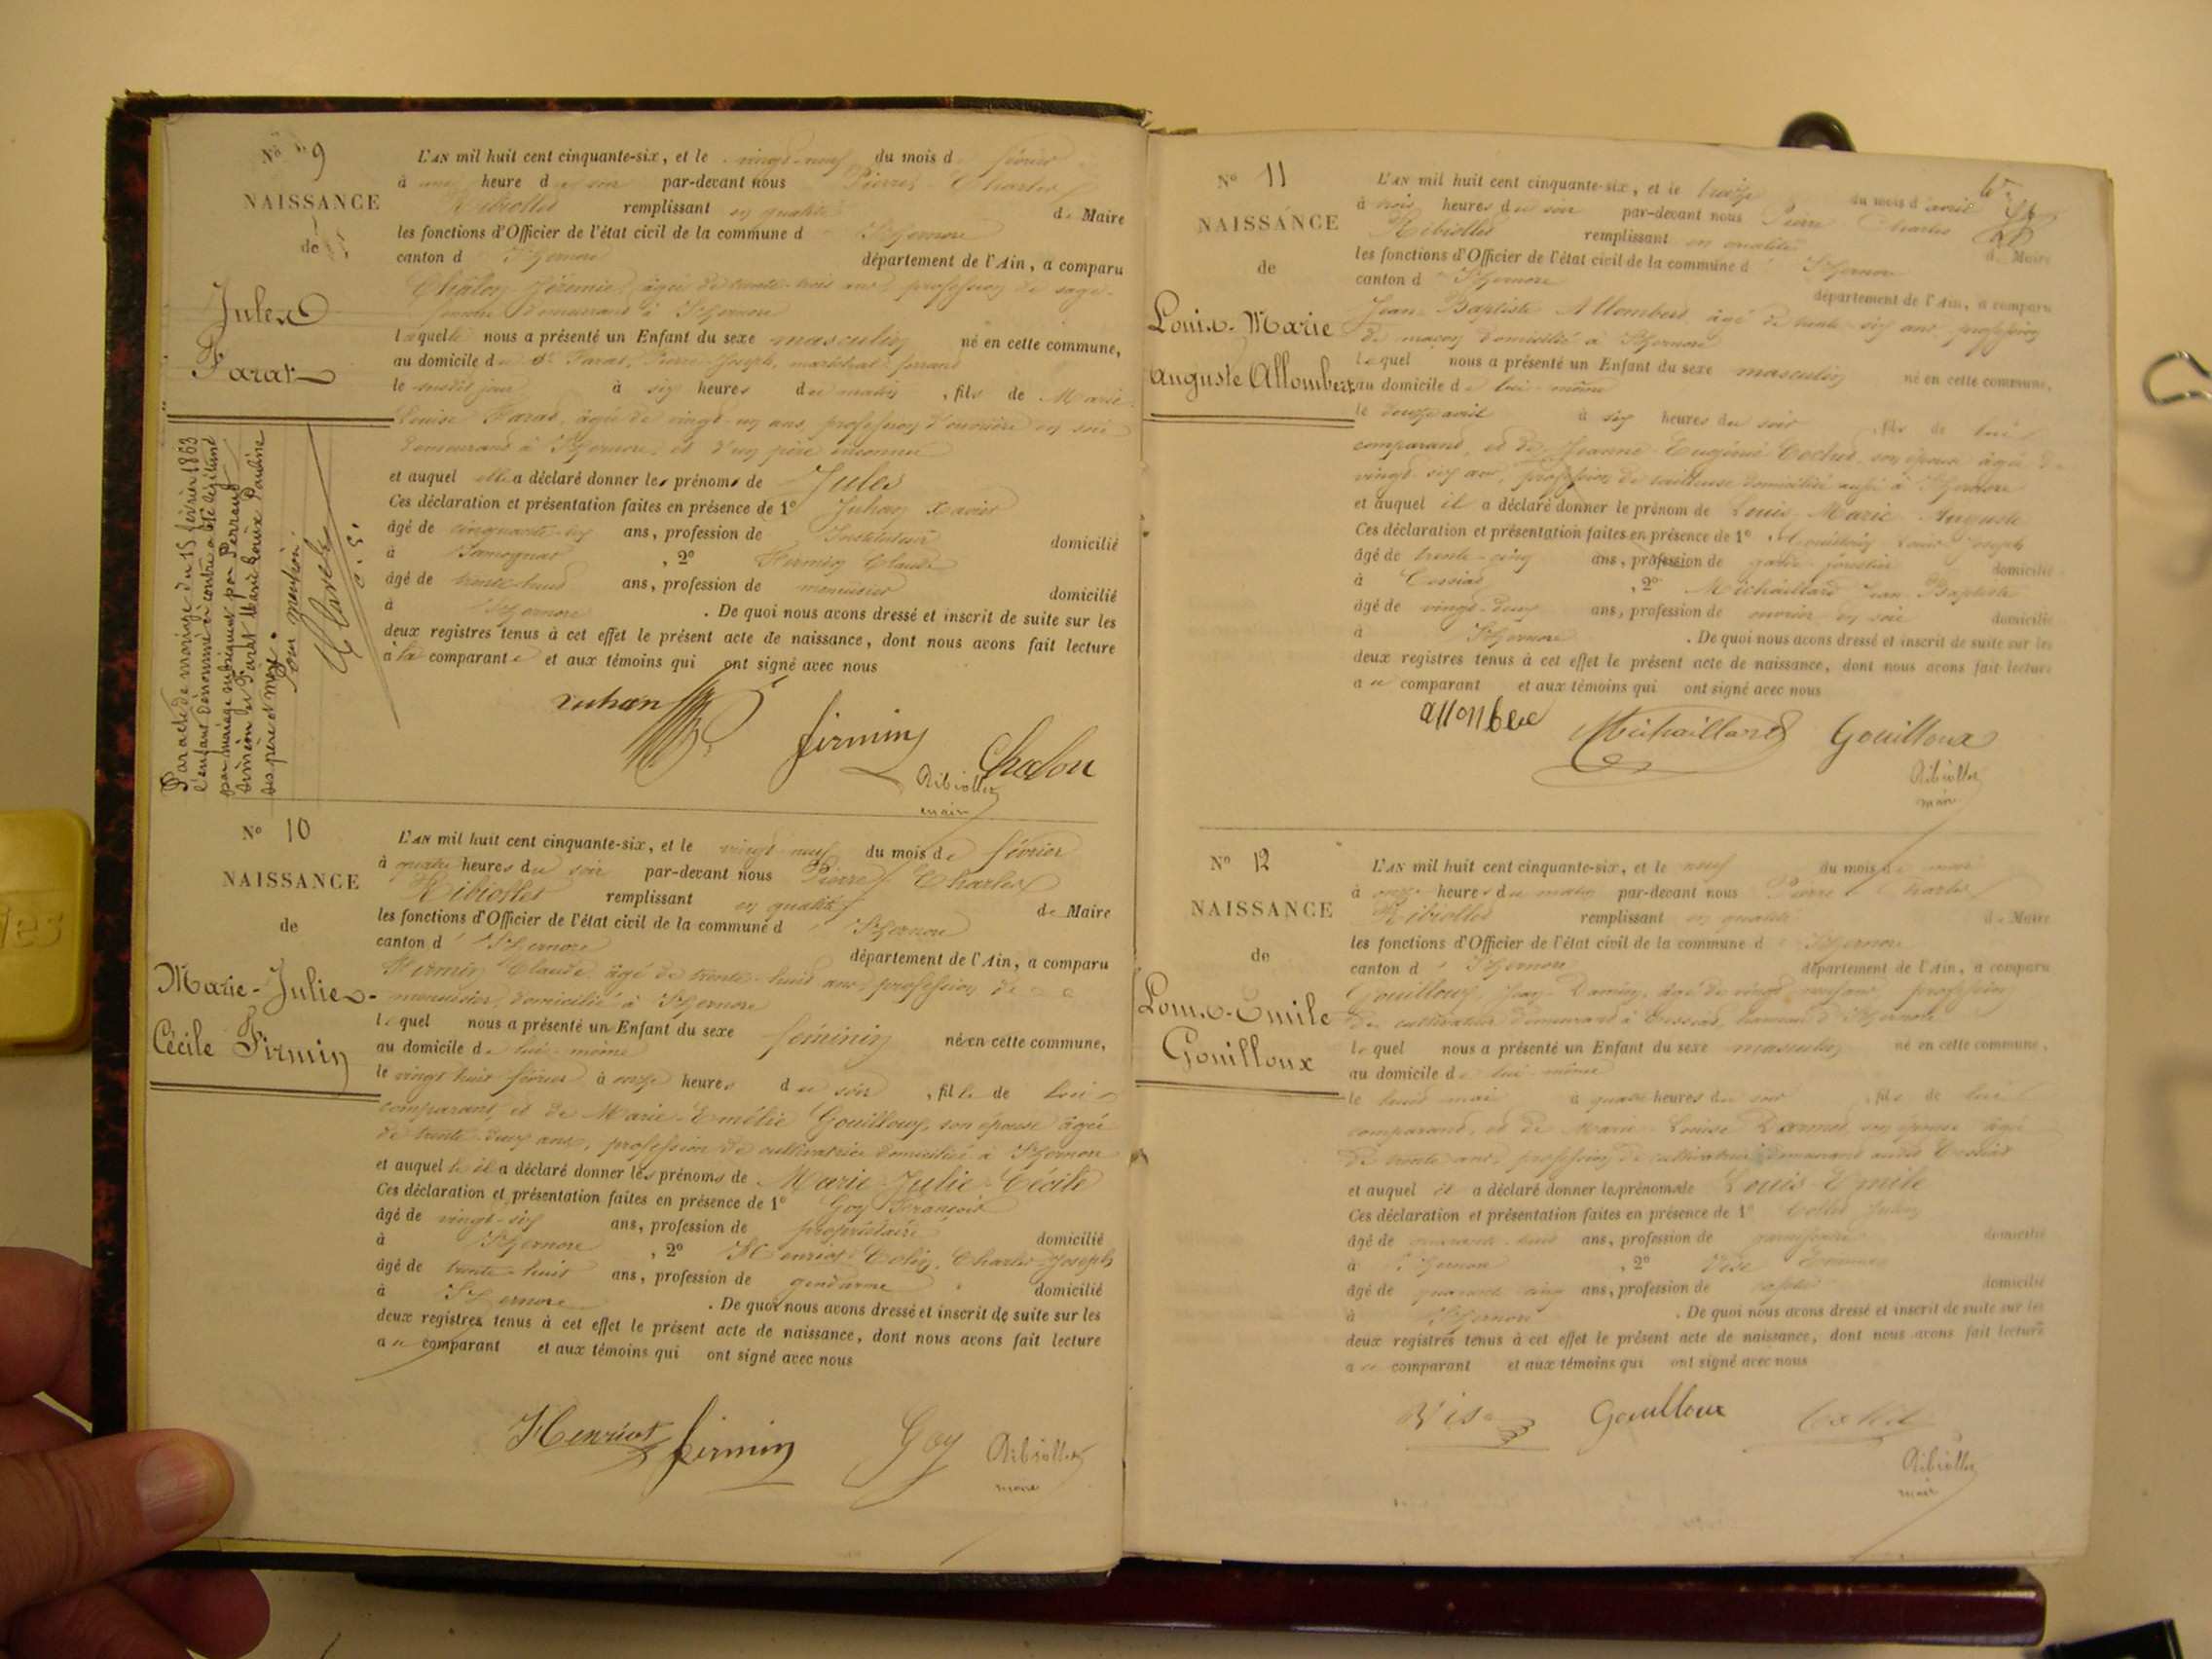 Nº 9
NAISSANCE
de
Jules
Farat
L'AN mil huit cent cinquante-six, et le vingt-neuf du mois de février
à une heure du soir par-devant nous Pierre Charles
Ribiollet remplissant en qualité de Maire
les fonctions d'Officier de l'état civil de la commune d'Izernore
canton d'Izernore département de l'Ain, a comparu
Chalon agée de trente-trois ans, profession de sage-
femme demeurant à Izernore
laquelle nous a présenté un Enfant du sexe masculin né en cette commune,
au domicile du Sr Farat, Pierre-Joseph, maréchal ferrant
le susdit jour à six heures du matin, fils de Marie
Louise Farat, agée de vingt-un ans, profession d'ouvrière en soie
demeurant à Izernore, et d'un père inconnu
et auquel elle a déclaré donner les prénoms de Jules
Ces déclaration et présentation faites en présence de 1º Juhan Xavier
âgé de ans, profession de Instituteur domicilié
à Samognat, 2º Firmin Claude
âgé de trente-huit ans, profession de menuisier domicilié
à Izernore. De quoi nous avons dressé et inscrit de suite sur les
deux registres tenus à cet effet le présent acte de naissance, dont nous avons fait lecture
à la comparante et aux témoins qui ont signé avec nous
Juhan firmin Chalon
Ribiollet
maire
Par acte de mariage du 15 février 1863
l'enfant dénommé ci contre a été légitimé
par mariage subséquent par Perraud
et Farat Marie Louise Pauline
ses père et mère.
Pour mention
Nº 10
NAISSANCE
de
Marie-Julie-
Cécile Firmin
L'AN mil huit cent cinquante-six, et le vingt-neuf du mois de février
à quatre heures du soir par-devant nous Pierre Charles
Ribiollet remplissant en qualité de Maire
les fonctions d'Officier de l'état civil de la commune d'Izernore
canton d'Izernore département de l'Ain, a comparu
Firmin Claude, âgé de trente-huit ans, profession de
menuisier, domicilié à Izernore
lequel nous a présenté un Enfant du sexe féminin né en cette commune,
au domicile de lui-même
le vingt huit février à onze heures du soir, fille de lui
comparant, et de Marie-Emélie Gouilloux, son épouse âgée
de trente-deux ans, profession de cultivatrice domiciliée à Izernore
et auquel le il a déclaré donner les prénoms de Marie-Julie-Cécile
Ces déclaration et présentation faites en présence de 1º Goy François
âgé de vingt-six ans, profession de propriétaire domicilié
à Izernore, 2º Henriot Colin, Charles-Joseph
âgé de trente-huit ans, profession de gendarme domicilié
à Izernore. De quoi nous avons dressé et inscrit de suite sur les
deux registres tenus à cet effet le présent acte de naissance, dont nous avons fait lecture
au comparant et aux témoins qui ont signé avec nous
Henriot firmin Goy Ribiollet
maire
Nº 11
NAISSANCE
de
Louis-Marie
Auguste Allombert
L'AN mil huit cent cinquante-six, et le treize du mois d'avril
à trois heures du soir par-devant nous Pierre Charles
Ribiollet remplissant en qualité de Maire
les fonctions d'Officier de l'état civil de la commune d'Izernore
canton d'Izernore département de l'Ain, a comparu
Jean-Baptiste Allombert âgé de trente-six ans, profession
de maçon domicilié à Izernore
lequel nous a présenté un Enfant du sexe masculin né en cette commune,
au domicile de lui-même
le douze avril à six heures du soir, fils de lui
comparant, et de Jeanne-Eugénie Cochet, son épouse âgée de
vingt-six ans, profession de tailleuse domiciliée aussi à Izernore
et auquel il a déclaré donner le prénom de Louis-Marie-Auguste
Ces déclaration et présentation faites en présence de 1º Gouilloux Louis-Joseph
âgé de trente-cinq ans, profession de garde forestier domicilié
à Cessiat, 2º Michaillard Jean-Baptiste
âgé de vingt-deux ans, profession de ouvrier en soie domicilié
à Izernore. De quoi nous avons dressé et inscrit de suite sur les
deux registres tenus à cet effet le présent acte de naissance, dont nous avons fait lecture
au comparant et aux témoins qui ont signé avec nous
Michaillard Gouilloux
Ribiollet
maire
Nº 12
NAISSANCE
de
Louis-Emile
Gouilloux
L'AN mil huit cent cinquante-six, et le neuf du mois de mai
à onze heures du matin par-devant nous Pierre Charles
Ribiollet remplissant en qualité de Maire
les fonctions d'Officier de l'état civil de la commune d'Izernore
canton d'Izernore département de l'Ain, a comparu
Gouilloux, Jean-Damien, âgé de vingt-neuf ans, profession
de cultivateur demeurant à Cessiat, hameau d'Izernore
lequel nous a présenté un Enfant du sexe masculin né en cette commune,
au domicile de lui-même
le huit mai à quatre heures du soir, fils de lui
comparant, et de Marie-Louise son épouse âgée
de trente ans, profession de cultivatrice demeurant audit Cessiat
et auquel il a déclaré donner les prénoms de Louis-Emile
Ces déclaration et présentation faites en présence de 1º
âgé de ans, profession de domicilié
à Izernore, 2º
âgé de quarante cinq ans, profession de domicilié
à Izernore. De quoi nous avons dressé et inscrit de suite sur les
deux registres tenus à cet effet le présent acte de naissance, dont nous avons fait lecture
au comparant et aux témoins qui ont signé avec nous
Gouilloux
Ribiollet
maire